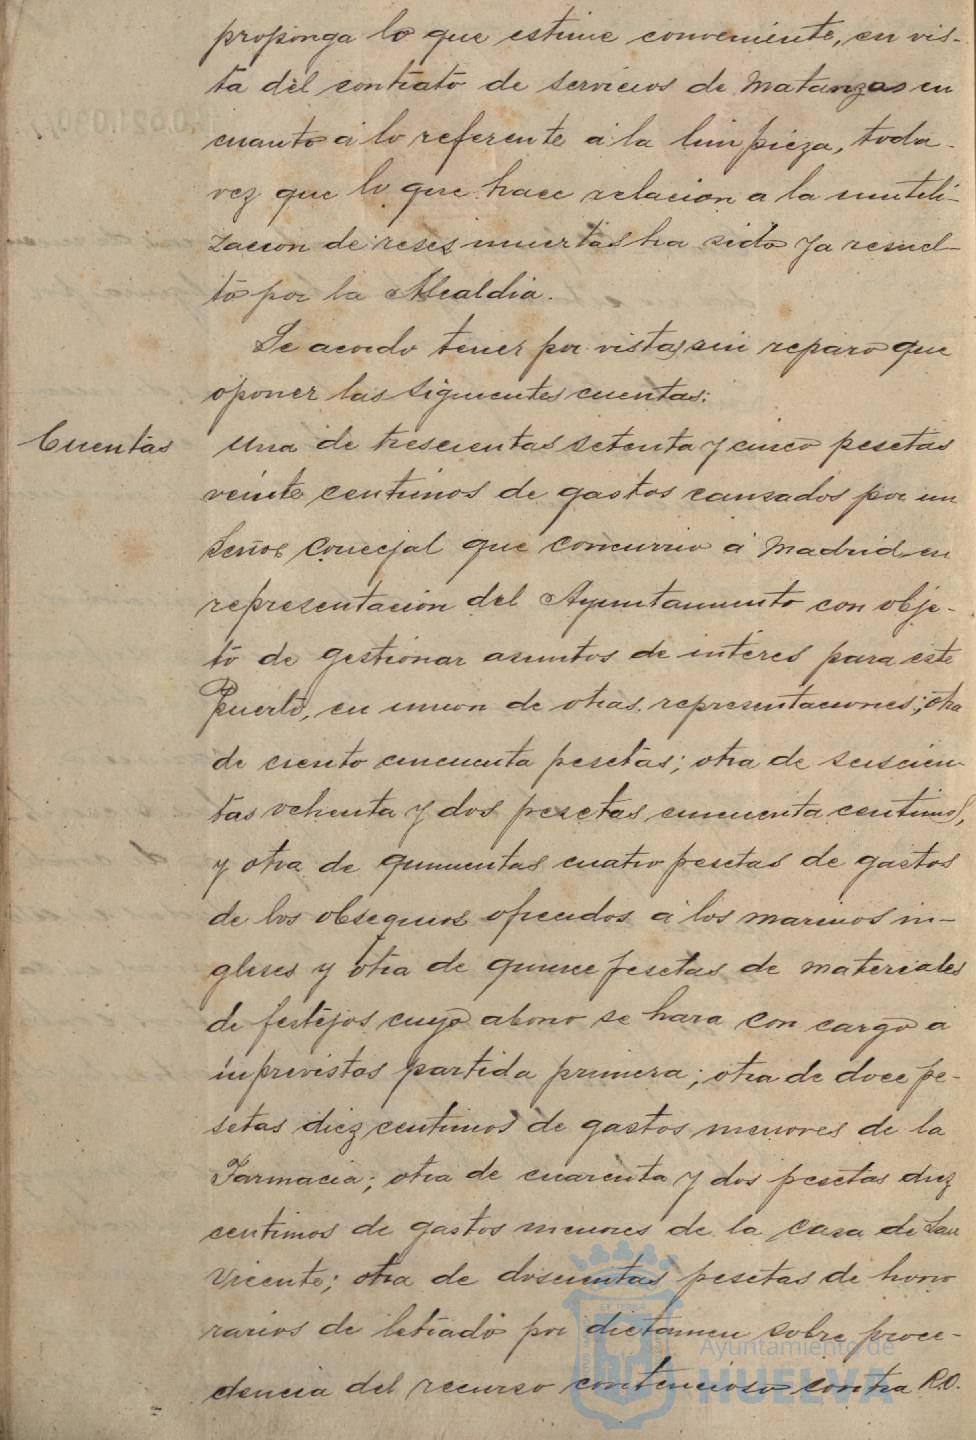 proponga lo que estime conveniente, en vis-
ta del contrato de servicios de Matanzas en
cuanto á lo referente á la limpieza, toda-
vez que lo que hace relacion a la inutili-
zacion de reses muertas ha sido ya resuel-
to por la Alcaldia.
Se acordo tener por vistas, sin reparo que
oponer las siguientes cuentas:
Cuentas
Una de trescientas setenta y cinco pesetas
veinte centimos de gastos causados por un
Señor Concejal que concurrio á Madrid en
representación del Ayuntamiento con obje-
to de gestionar asuntos de interes para este
Puerto, en union de otras representaciones; otra
de ciento cincuenta pesetas; otra de seiscien-
tas ochenta y dos pesetas cincuenta centimos,
y otra de quinientas cuatro pesetas de gastos
de los obsequios ofrecidos á los marinos in-
gleses y otra de quince pesetas de materiales
de festejos cuyo abono se hara con cargo á
inprevistos partida primera; otra de doce pe-
setas diez centimos de gastos menores de la
Farmacia; otra de cuarenta y dos pesetas diez
centimos de gastos menores de la casa de San
Vicente; otra de doscientas pesetas de hono
rarios de letrado por dictamen sobre proce-
dencia del recurso contencioso contra R.O.
Ayuntamiento de
HUELVA